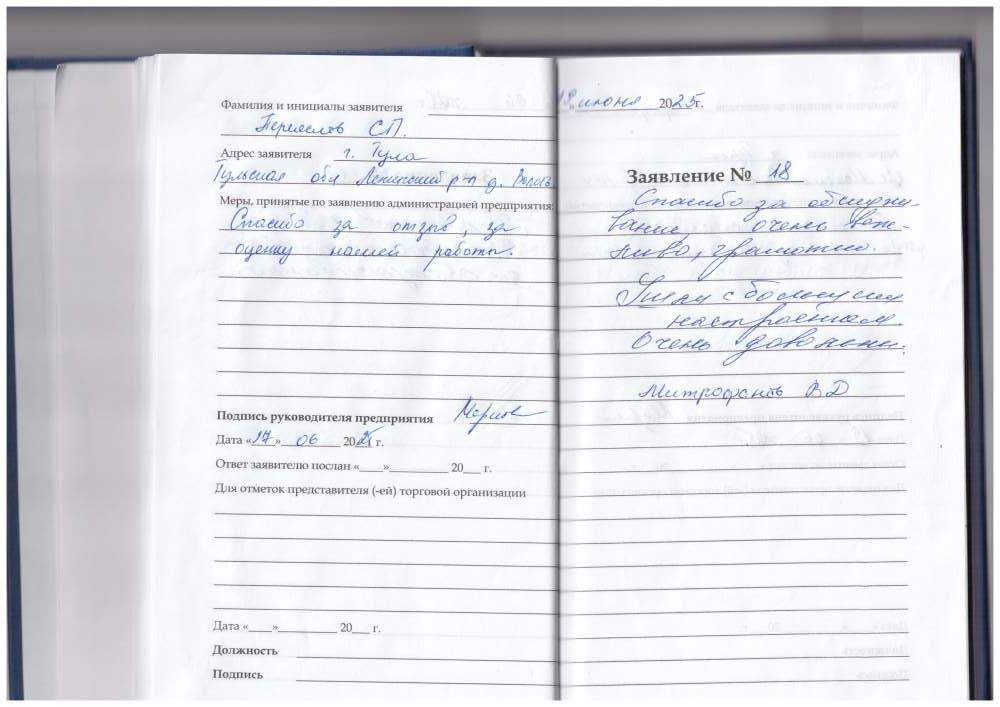 Фамилия и инициалы заявителя
С.П.
Адрес заявителя г. Тула
Тульская обл Ленинский р-н д.
Меры, принятые по заявлению администрацией предприятия:
Спасибо за отзыв, за
оценку нашей работы.
Подпись руководителя предприятия
Дата «17» 06 20 г.
Ответ заявителю послан «___»__________ 20___ г.
Для отметок представителя (-ей) торговой организации
Дата «____»__________ 20___ г.
Должность
Подпись
июня 2025г.
Заявление № 18
Спасибо за обслужи-
вание, очень веж-
ливо, грамотно.
с большим
настроением.
Очень довольны.
Митрофанов В Д